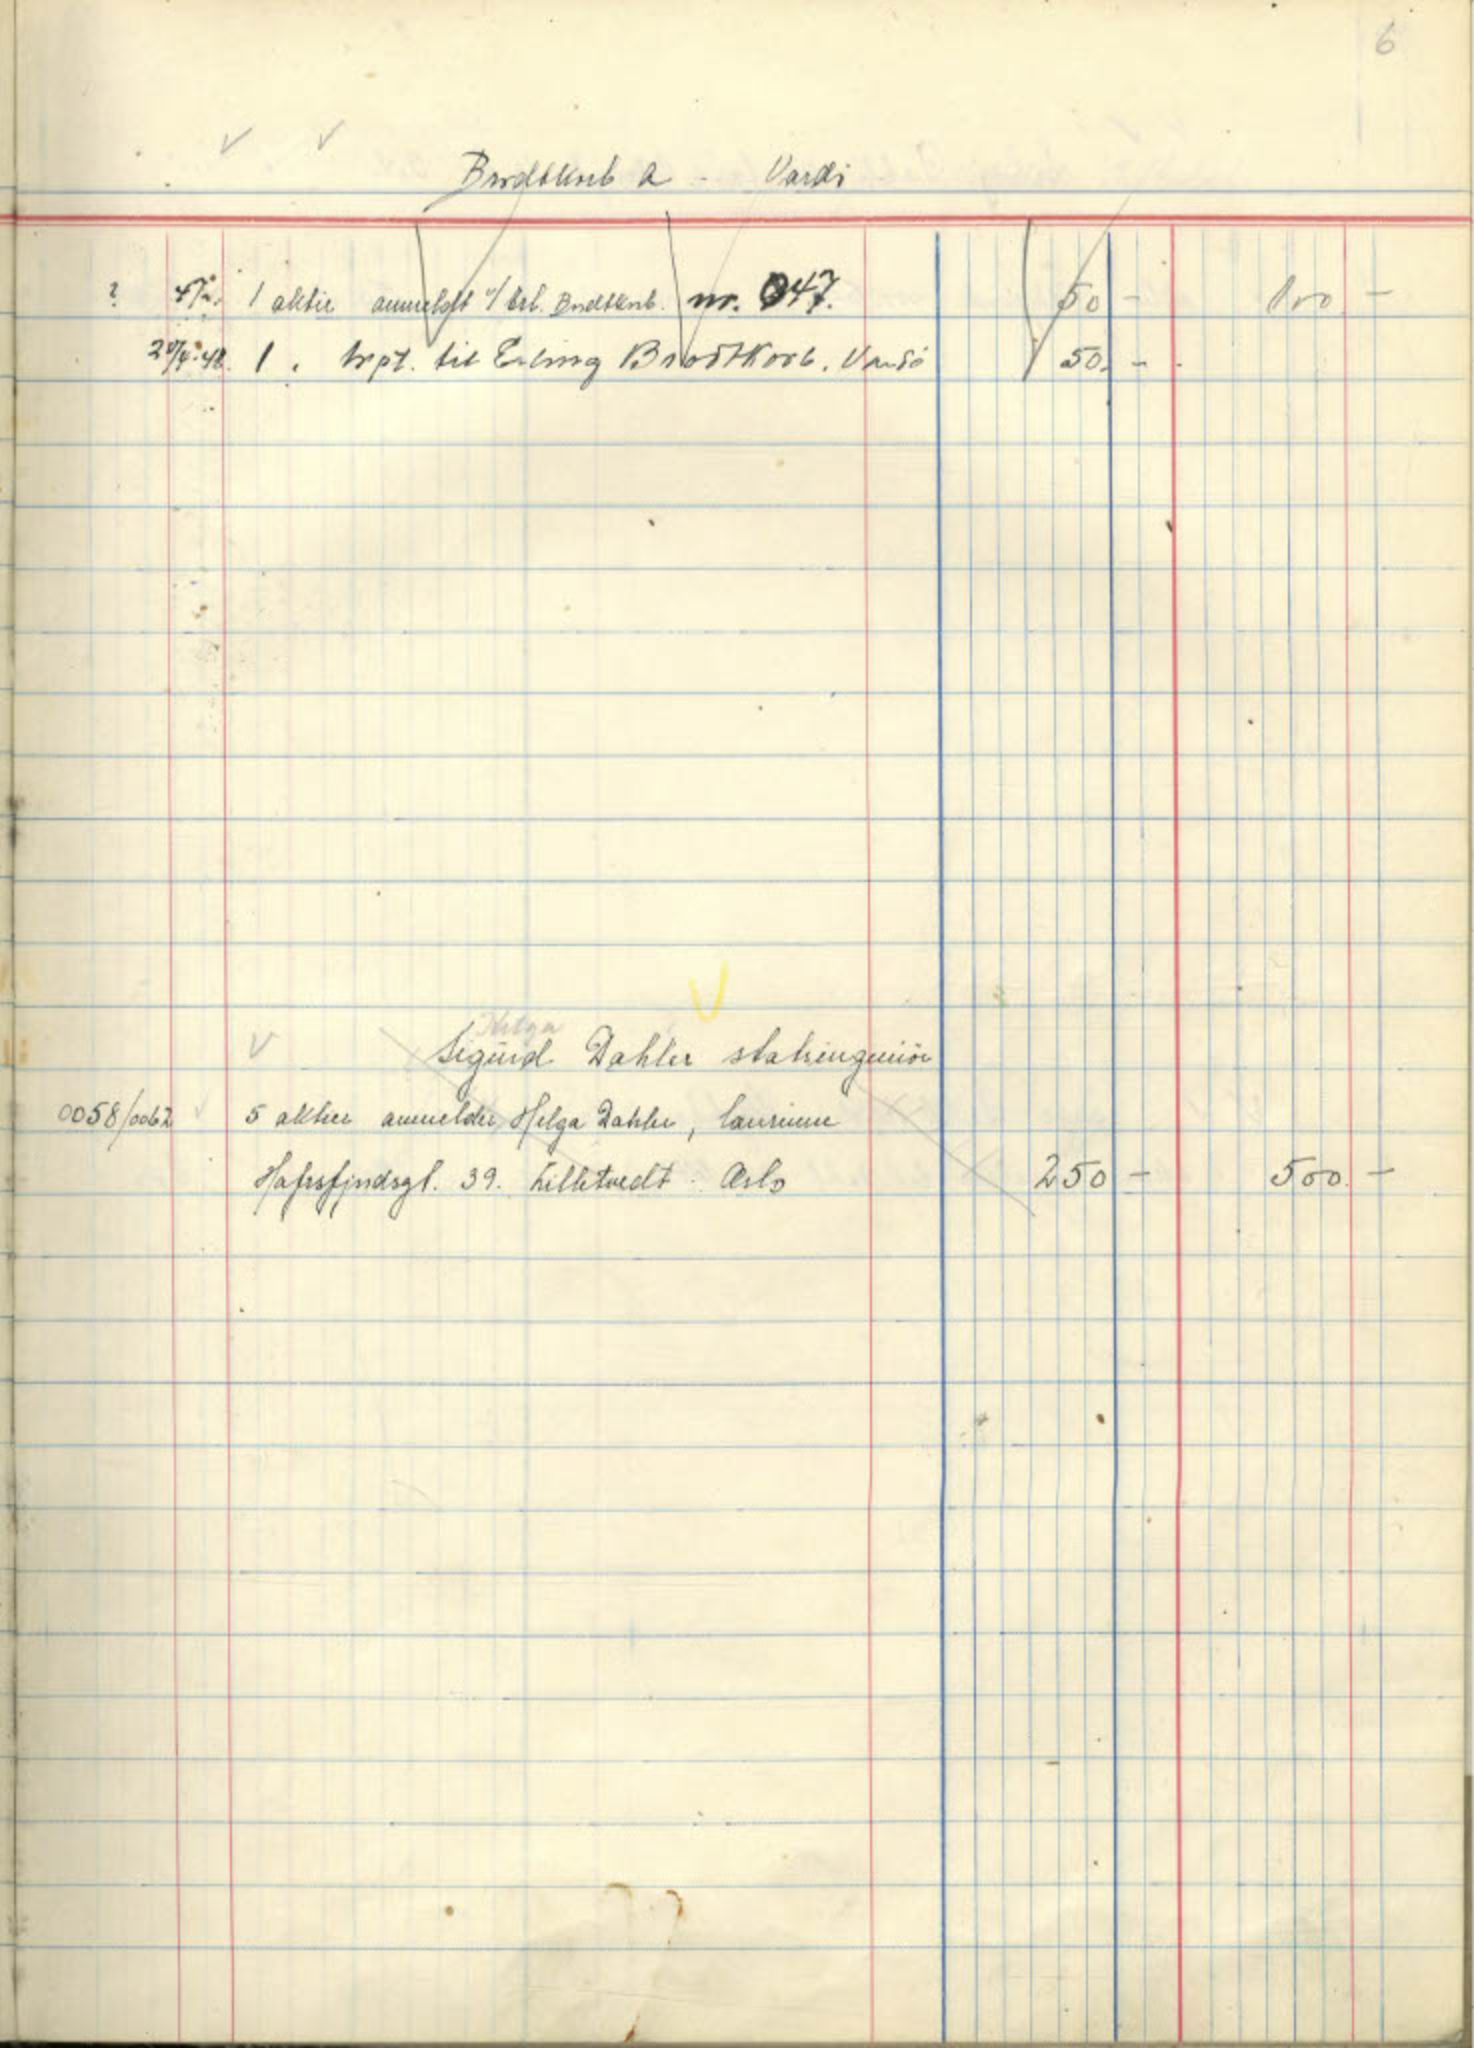 6
Brodtkorb A - Vardö
? 1 aktie anmeldt v/ Erl. Brodtkorb. nr. 047. 50 - 100 -
1 " trpt. til Erling Brodtkorb. Vardö 50. -
Helga
Sigurd Dahler statsingeniör
0058/0062 5 aktier anmeldes Helga Dahler,
Hafrsfjordsgt. 39. Oslo 250 - 500. -